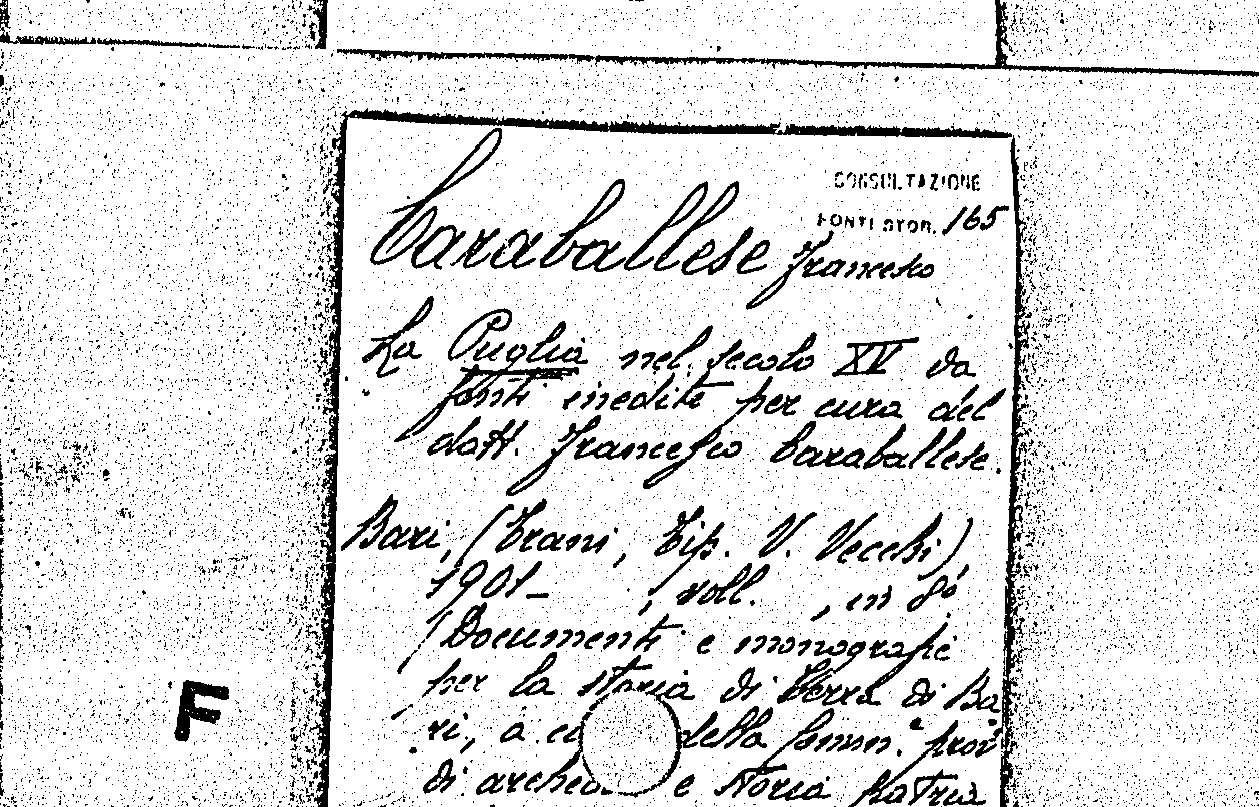 CONSULTAZIONE
FONTI STOR. 165
Caraballese Francesco
La Puglia nel secolo XV da
fonti inedite per cura del
dott. Francesco Caraballese.
Bari, (Trani, Tip. V. Vecchi),
1901- , voll. , in 8º
(Documenti e monografie
per la storia di Terra di Ba
ri, a della Comm.ᵉ prov
di e storia patria
F